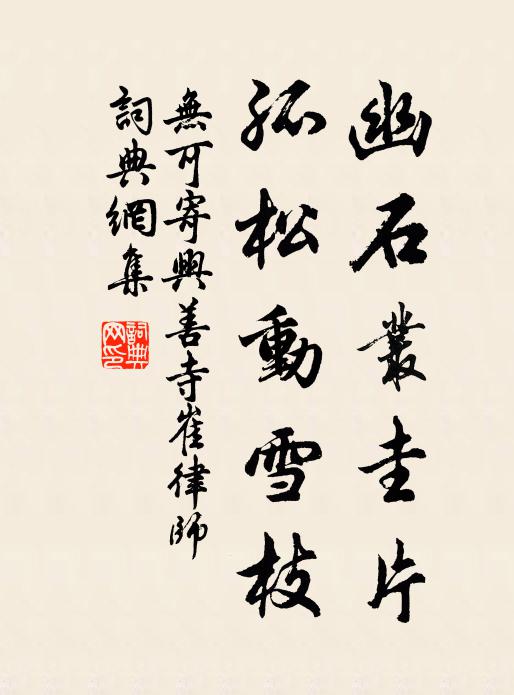 幽石叢圭片
孤松動雪枝
無可寄興善寺崔律師
詞典網集
詞典
网印